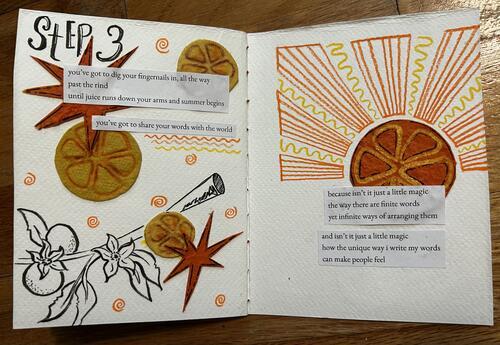 STEP 3
you've got to dig your fingernails in, all the way
past the rind
until juice runs down your arms and summer begins
you've got to share your words with the world
because isn't it just a little magic
the way there are finite words
yet infinite ways of arranging them
and isn't it just a little magic
how the unique way i write my words
can make people feel